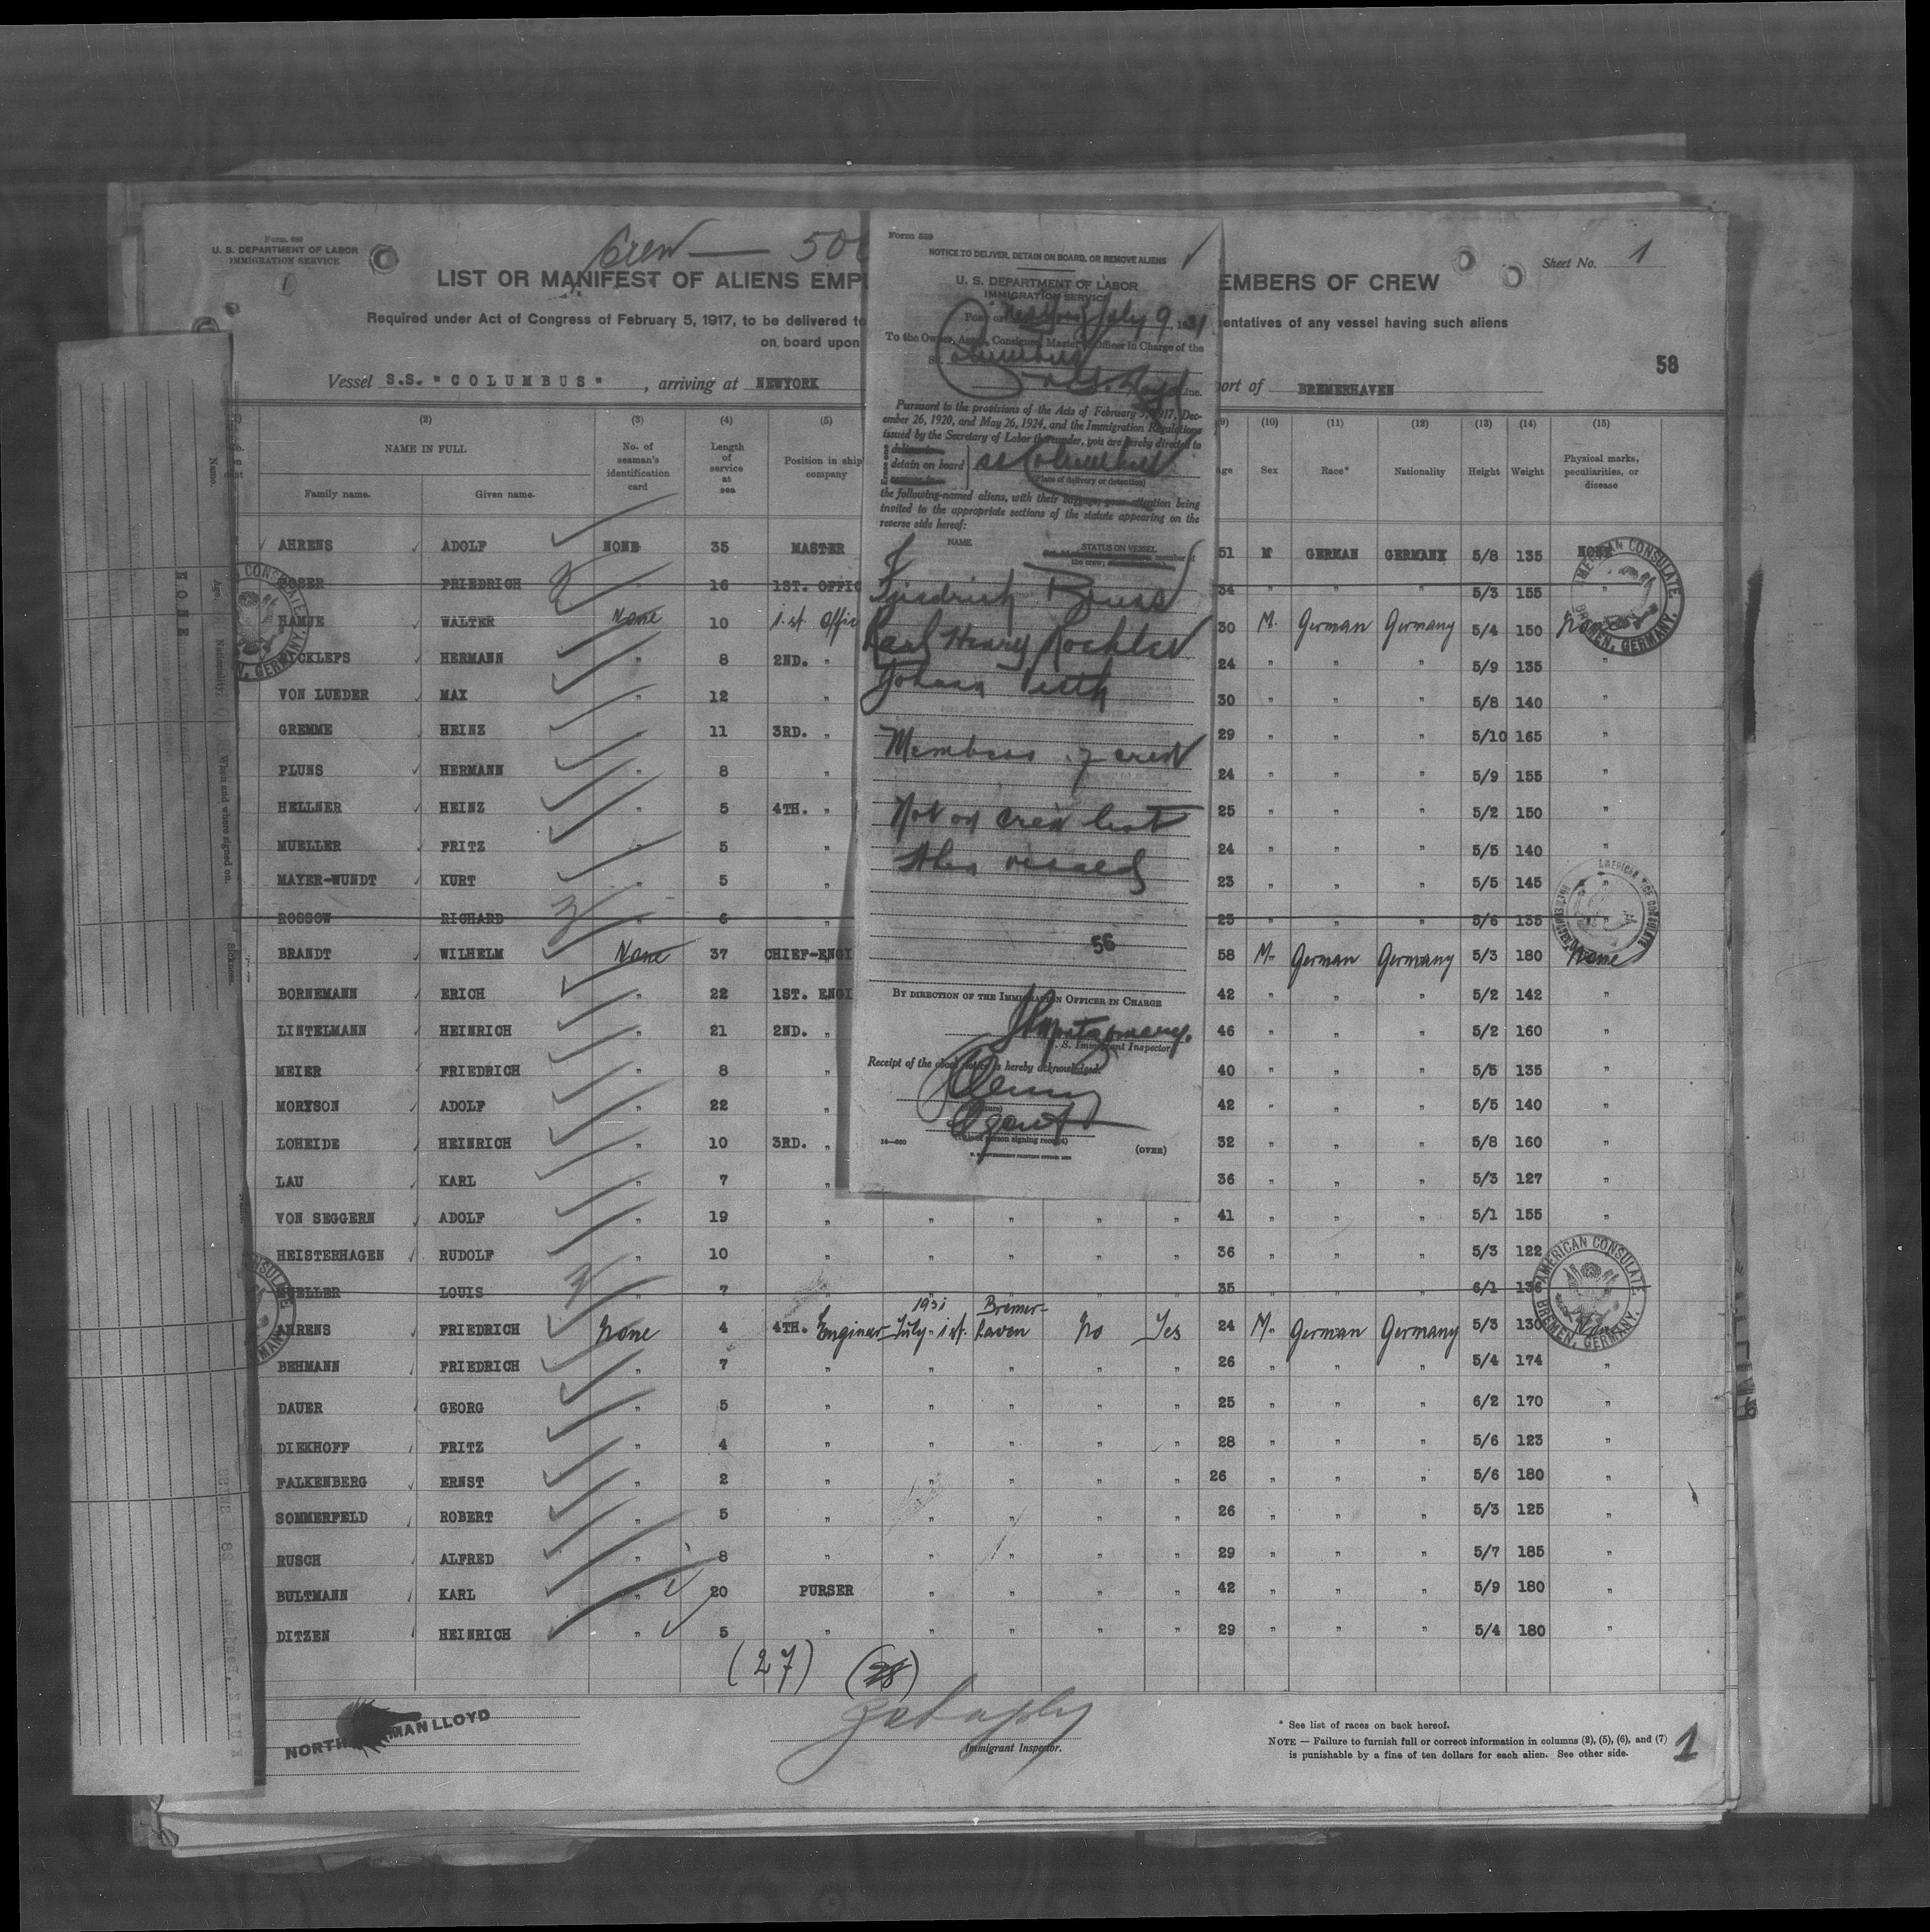 Form 689
U. S. DEPARTMENT OF LABOR
IMMIGRATION SERVICE
Crew — 50
Sheet No. 1
LIST OR MANIFEST OF ALIENS EMP
EMBERS OF CREW
Required under Act of Congress of February 5, 1917, to be delivered to
entatives of any vessel having such aliens
on board upon
58
Vessel S.S. "COLUMBUS" , arriving at NEWYORK
port of BREMERHAVEN
(2) (3) (4) (5) (9) (10) (11) (12) (13) (14) (15)
NAME IN FULL
Family name. Given name.
No. of seaman's identification card
Length of service at sea
Position in ship company
Age Sex Race* Nationality Height Weight
Physical marks, peculiarities, or disease
AHRENS ADOLF NONE 35 MASTER 51 M GERMAN GERMANY 5/8 135 NONE
MOSER FRIEDRICH " 16 1ST. OFFIC 34 " " " 5/3 155 "
HAMJE WALTER None 10 1.st. Offic 30 M. German Germany 5/4 150 None
HERMANN " 8 2ND. " 24 " " " 5/9 135 "
VON LUEDER MAX " 12 " 30 " " " 5/8 140 "
GREMME HEINZ " 11 3RD. " 29 " " " 5/10 165 "
PLUNS HERMANN " 8 " 24 " " " 5/9 155 "
HELLNER HEINZ " 5 4TH. " 25 " " " 5/2 150 "
MUELLER FRITZ " 5 " 24 " " " 5/5 140 "
MAYER-WUNDT KURT " 5 " 23 " " " 5/5 145 "
ROSSOW RICHARD " 6 " 25 " " " 5/6 135 "
BRANDT WILHELM None 37 CHIEF-ENGI 58 M. German Germany 5/3 180 None
BORNEMANN ERICH " 22 1ST. ENGI 42 " " " 5/2 142 "
LINTELMANN HEINRICH " 21 2ND. " 46 " " " 5/2 160 "
MEIER FRIEDRICH " 8 " 40 " " " 5/5 135 "
MORYSON ADOLF " 22 " 42 " " " 5/5 140 "
LOHEIDE HEINRICH " 10 3RD. " 32 " " " 5/8 160 "
LAU KARL " 7 " 36 " " " 5/3 127 "
VON SEGGERN ADOLF " 19 " " " " " 41 " " " 5/1 155 "
HEISTERHAGEN RUDOLF " 10 " " " " " 36 " " " 5/3 122
MUELLER LOUIS " 7 " " " " " 35 " " " 6/1 136
AHRENS FRIEDRICH None 4 4TH. Engineer 1931 July-1st. Bremer-haven No Yes 24 M. German Germany 5/3 130 None
BEHMANN FRIEDRICH " 7 " " " " " 26 " " " 5/4 174 "
DAUER GEORG " 5 " " " " " 25 " " " 6/2 170 "
DIEKHOFF FRITZ " 4 " " " " " 28 " " " 5/6 123 "
FALKENBERG ERNST " 2 " " " " " 26 " " " 5/6 180 "
SOMMERFELD ROBERT " 5 " " " " " 26 " " " 5/3 125 "
RUSCH ALFRED " 8 " " " " " 29 " " " 5/7 185 "
BULTMANN KARL " 20 PURSER " " " " 42 " " " 5/9 180 "
DITZEN HEINRICH " 5 " " " " " 29 " " " 5/4 180 "
(27) (28)
NORTH GERMAN LLOYD
Immigrant Inspector.
* See list of races on back hereof.
NOTE — Failure to furnish full or correct information in columns (2), (5), (6), and (7)
is punishable by a fine of ten dollars for each alien. See other side.
1
Form 559
NOTICE TO DELIVER, DETAIN ON BOARD, OR REMOVE ALIENS
U. S. DEPARTMENT OF LABOR
IMMIGRATION SERVICE
Port of New York July 9, 1931
To the Owner, Agent, Consignee, Master or Officer in Charge of the
SS. Columbus
N. G. Lloyd Line.
Pursuant to the provisions of the Acts of February 5, 1917, Dec-
ember 26, 1920, and May 26, 1924, and the Immigration Regulations
issued by the Secretary of Labor thereunder, you are hereby directed to
detain on board SS Columbus
(Place of delivery or detention)
the following-named aliens, with their baggage, your attention being
invited to the appropriate sections of the statute appearing on the
reverse side hereof:
NAME STATUS ON VESSEL
member of
the crew;
Friedrich Bruss
Karl Henry Kochler
Johann Veith
Members of crew
Not on crew list
Also visaed
56
BY DIRECTION OF THE IMMIGRATION OFFICER IN CHARGE
Montgomery.
U. S. Immigrant Inspector.
Receipt of the above notice is hereby acknowledged.
Agent
(Title of person signing receipt)
14—660
(OVER)
U. S. GOVERNMENT PRINTING OFFICE
AMERICAN CONSULATE
BREMEN, GERMANY.
AMERICAN VICE CONSULATE
AMERICAN CONSULATE.
BREMEN, GERMANY.
Name.
Age.
Nationality.
When and where signed on.
NONE